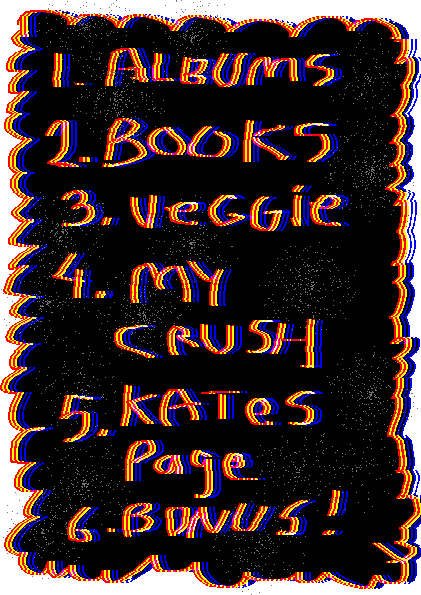 1. ALBUMS
2. BOOKS
3. VeGGie
4. MY
CRUSH
5. KATes
Page
6. BONUS!